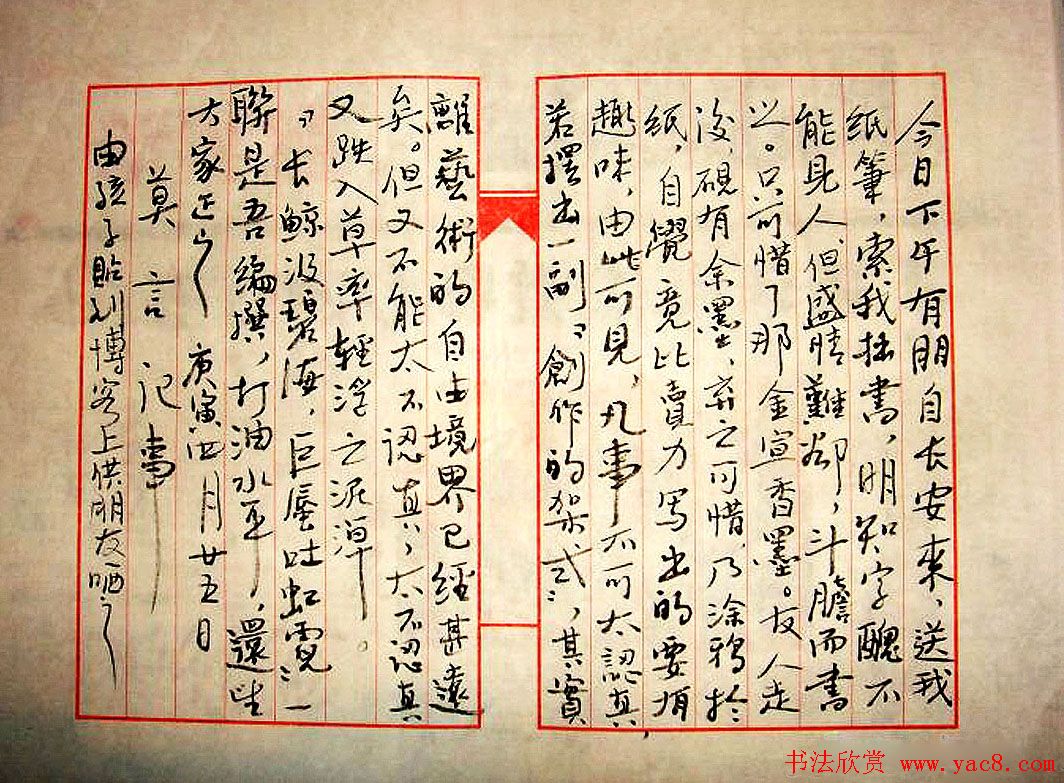 今日下午有朋自长安来，送我
纸筆，索我拙書，明知字醜不
能見人，但盛情難却，斗膽而書
之。只可惜了那金宣香墨。友人走
後，硯有余墨，弃之可惜，乃涂鴉於
纸，自覺竟比賣力写出的要有
趣味，由此可見，凡事不可太認真，
若擺出一副“創作的架式”，其實
離藝術的自由境界已經甚遠
矣。但又不能太不認真，太不認真
又跌入草率輕浮之泥淖。
“长鲸汲碧海，巨蜃吐虹霓”一
聯是吾编撰，打油水平，還望
大家正之 庚寅四月廿五日
莫言记事
由孩子貼到博客上供朋友哂之
书法欣赏 www.yac8.com